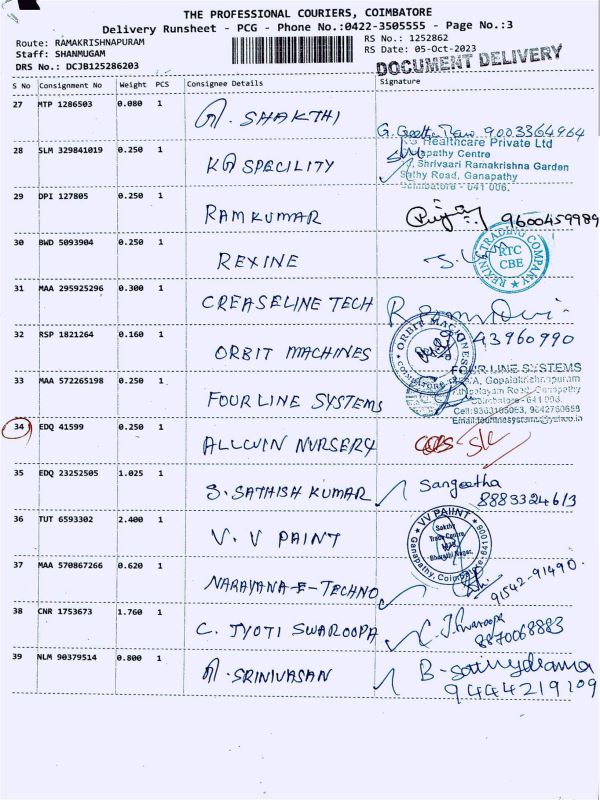 THE PROFESSIONAL COURIERS, COIMBATORE
Delivery Runsheet - PCG - Phone No.:0422-3505555 - Page No.:3
Route: RAMAKRISHNAPURAM
Staff: SHANMUGAM
DRS No.: DCJB125286203
RS No.: 1252862
RS Date: 05-Oct-2023
DOCUMENT DELIVERY
S No Consignment No Weight PCS Consignee Details Signature
27 MTP 1286503 0.080 1
SHAKTHI
9003364964
28 SLM 329841019 0.250 1
KG SPECILITY
Healthcare Private Ltd
Ganapathy Centre
Shrivaari Ramakrishna Garden
Sathy Road, Ganapathy
Coimbatore - 641 006.
29 DPI 127805 0.250 1
RAMKUMAR
9600459989
30 BWD 5093904 0.250 1
REXINE
REXINE TRADING COMPANY
RTC
CBE
31 MAA 295925296 0.300 1
CREASELINE TECH
R Rama Devi
32 RSP 1821264 0.160 1
ORBIT MACHINES
ORBIT MACHINES
COIMBATORE
43960990
33 MAA 572265198 0.250 1
FOUR LINE SYSTEMS
FOUR LINE SYSTEMS
Gopalakrishnapuram
Road, Ganapathy
Coimbatore - 641 006.
34 EDQ 41599 0.250 1
ALLWIN NURSERY
35 EDQ 23252505 1.025 1
S. SATHISH KUMAR
Sangeetha
8883324613
36 TUT 6593302 2.400 1
V. V PAINT
VV PAINT
Sakthi
Trade Centre
Bharathi Nagar,
Ganapathy, Coimbatore-641006
37 MAA 570867266 0.620 1
NARAYANA-E-TECHNO
91542-91490.
38 CNR 1753673 1.760 1
C. JYOTI SWAROOPA
C. J. Swaroopa
8870068883
39 NLM 90379514 0.800 1
SRINIVASAN
9444219109